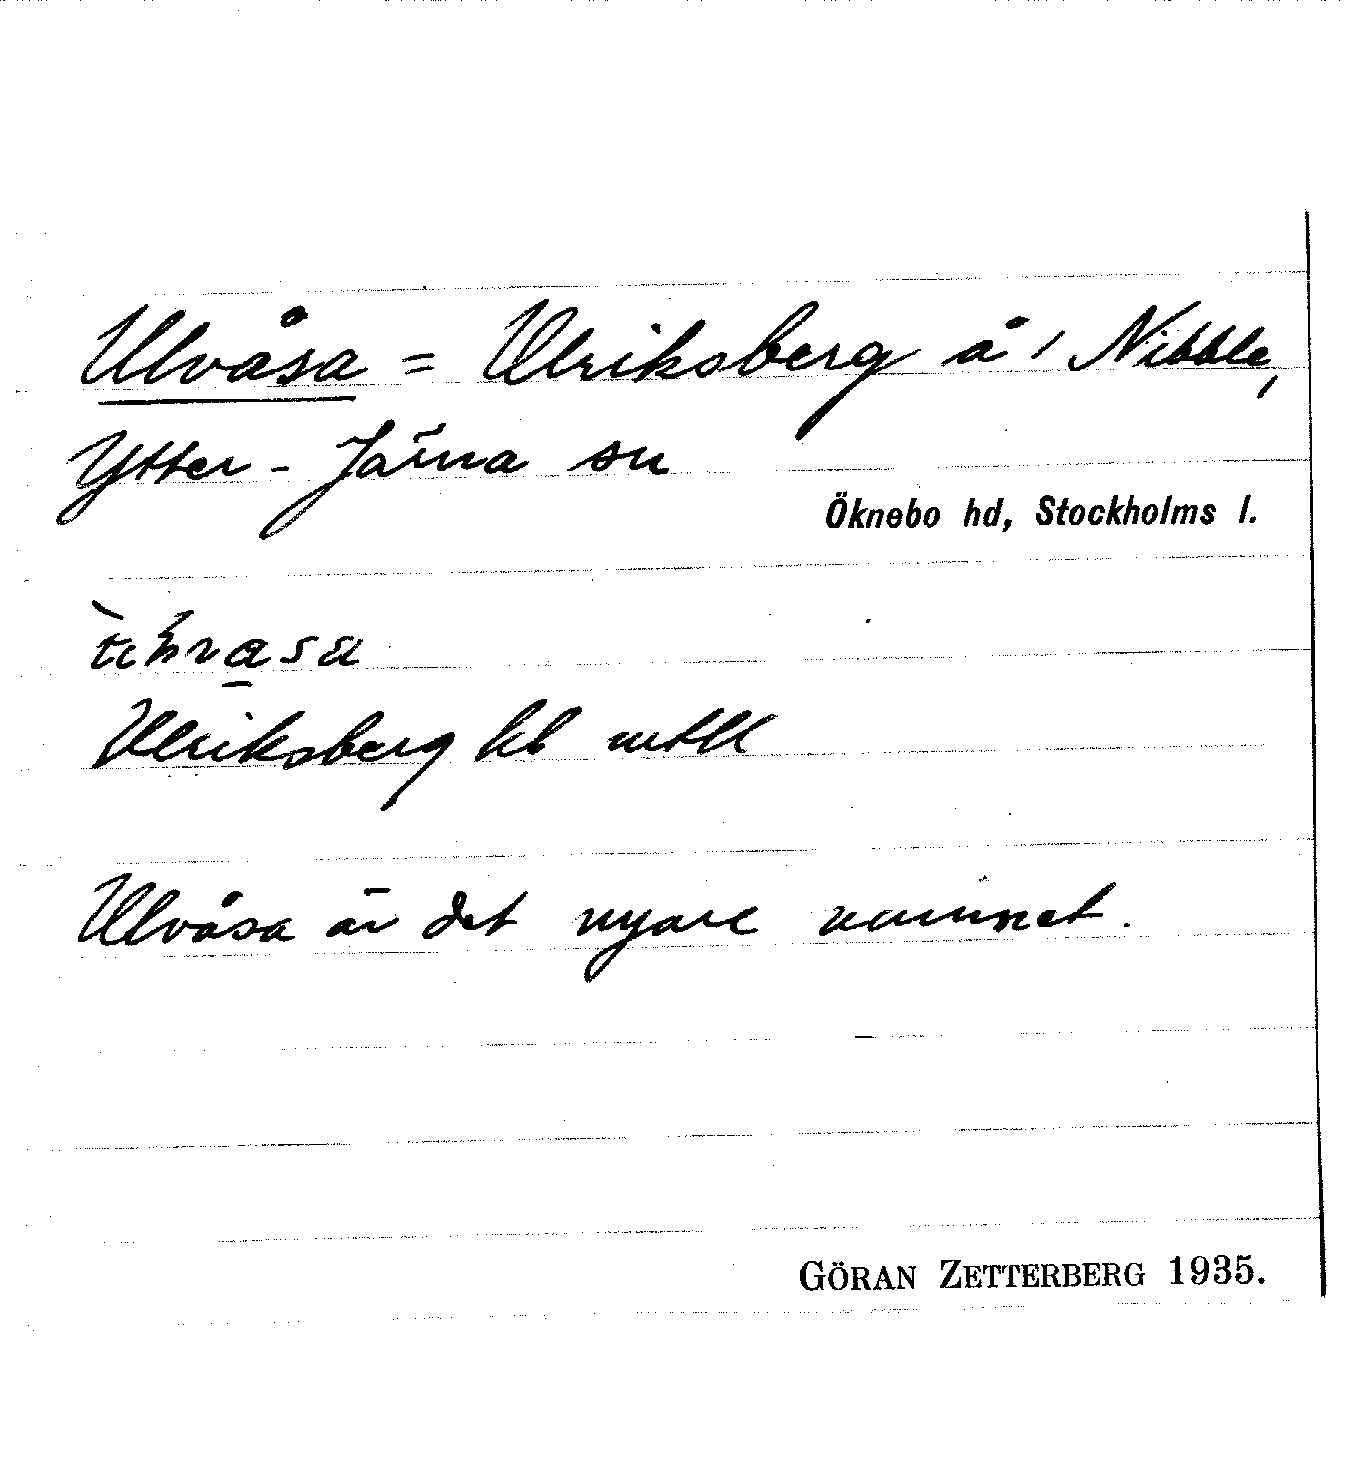 Ulvåsa = Ulriksberg å 1 Nibble,
Ytter-Järna sn
Öknebo hd, Stockholms l.
Ulriksberg kb
Ulvåsa är det nyare namnet.
GÖRAN ZETTERBERG 1935.